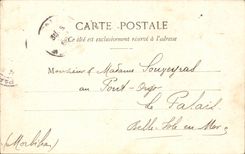 CARTE POSTALE
Ce côté est exclusivement réservé à l'adresse
Monsieur & Madame Souzeyras
au Pont-Orgo
Le Palais
Belle-Isle en Mer
(Morbihan)